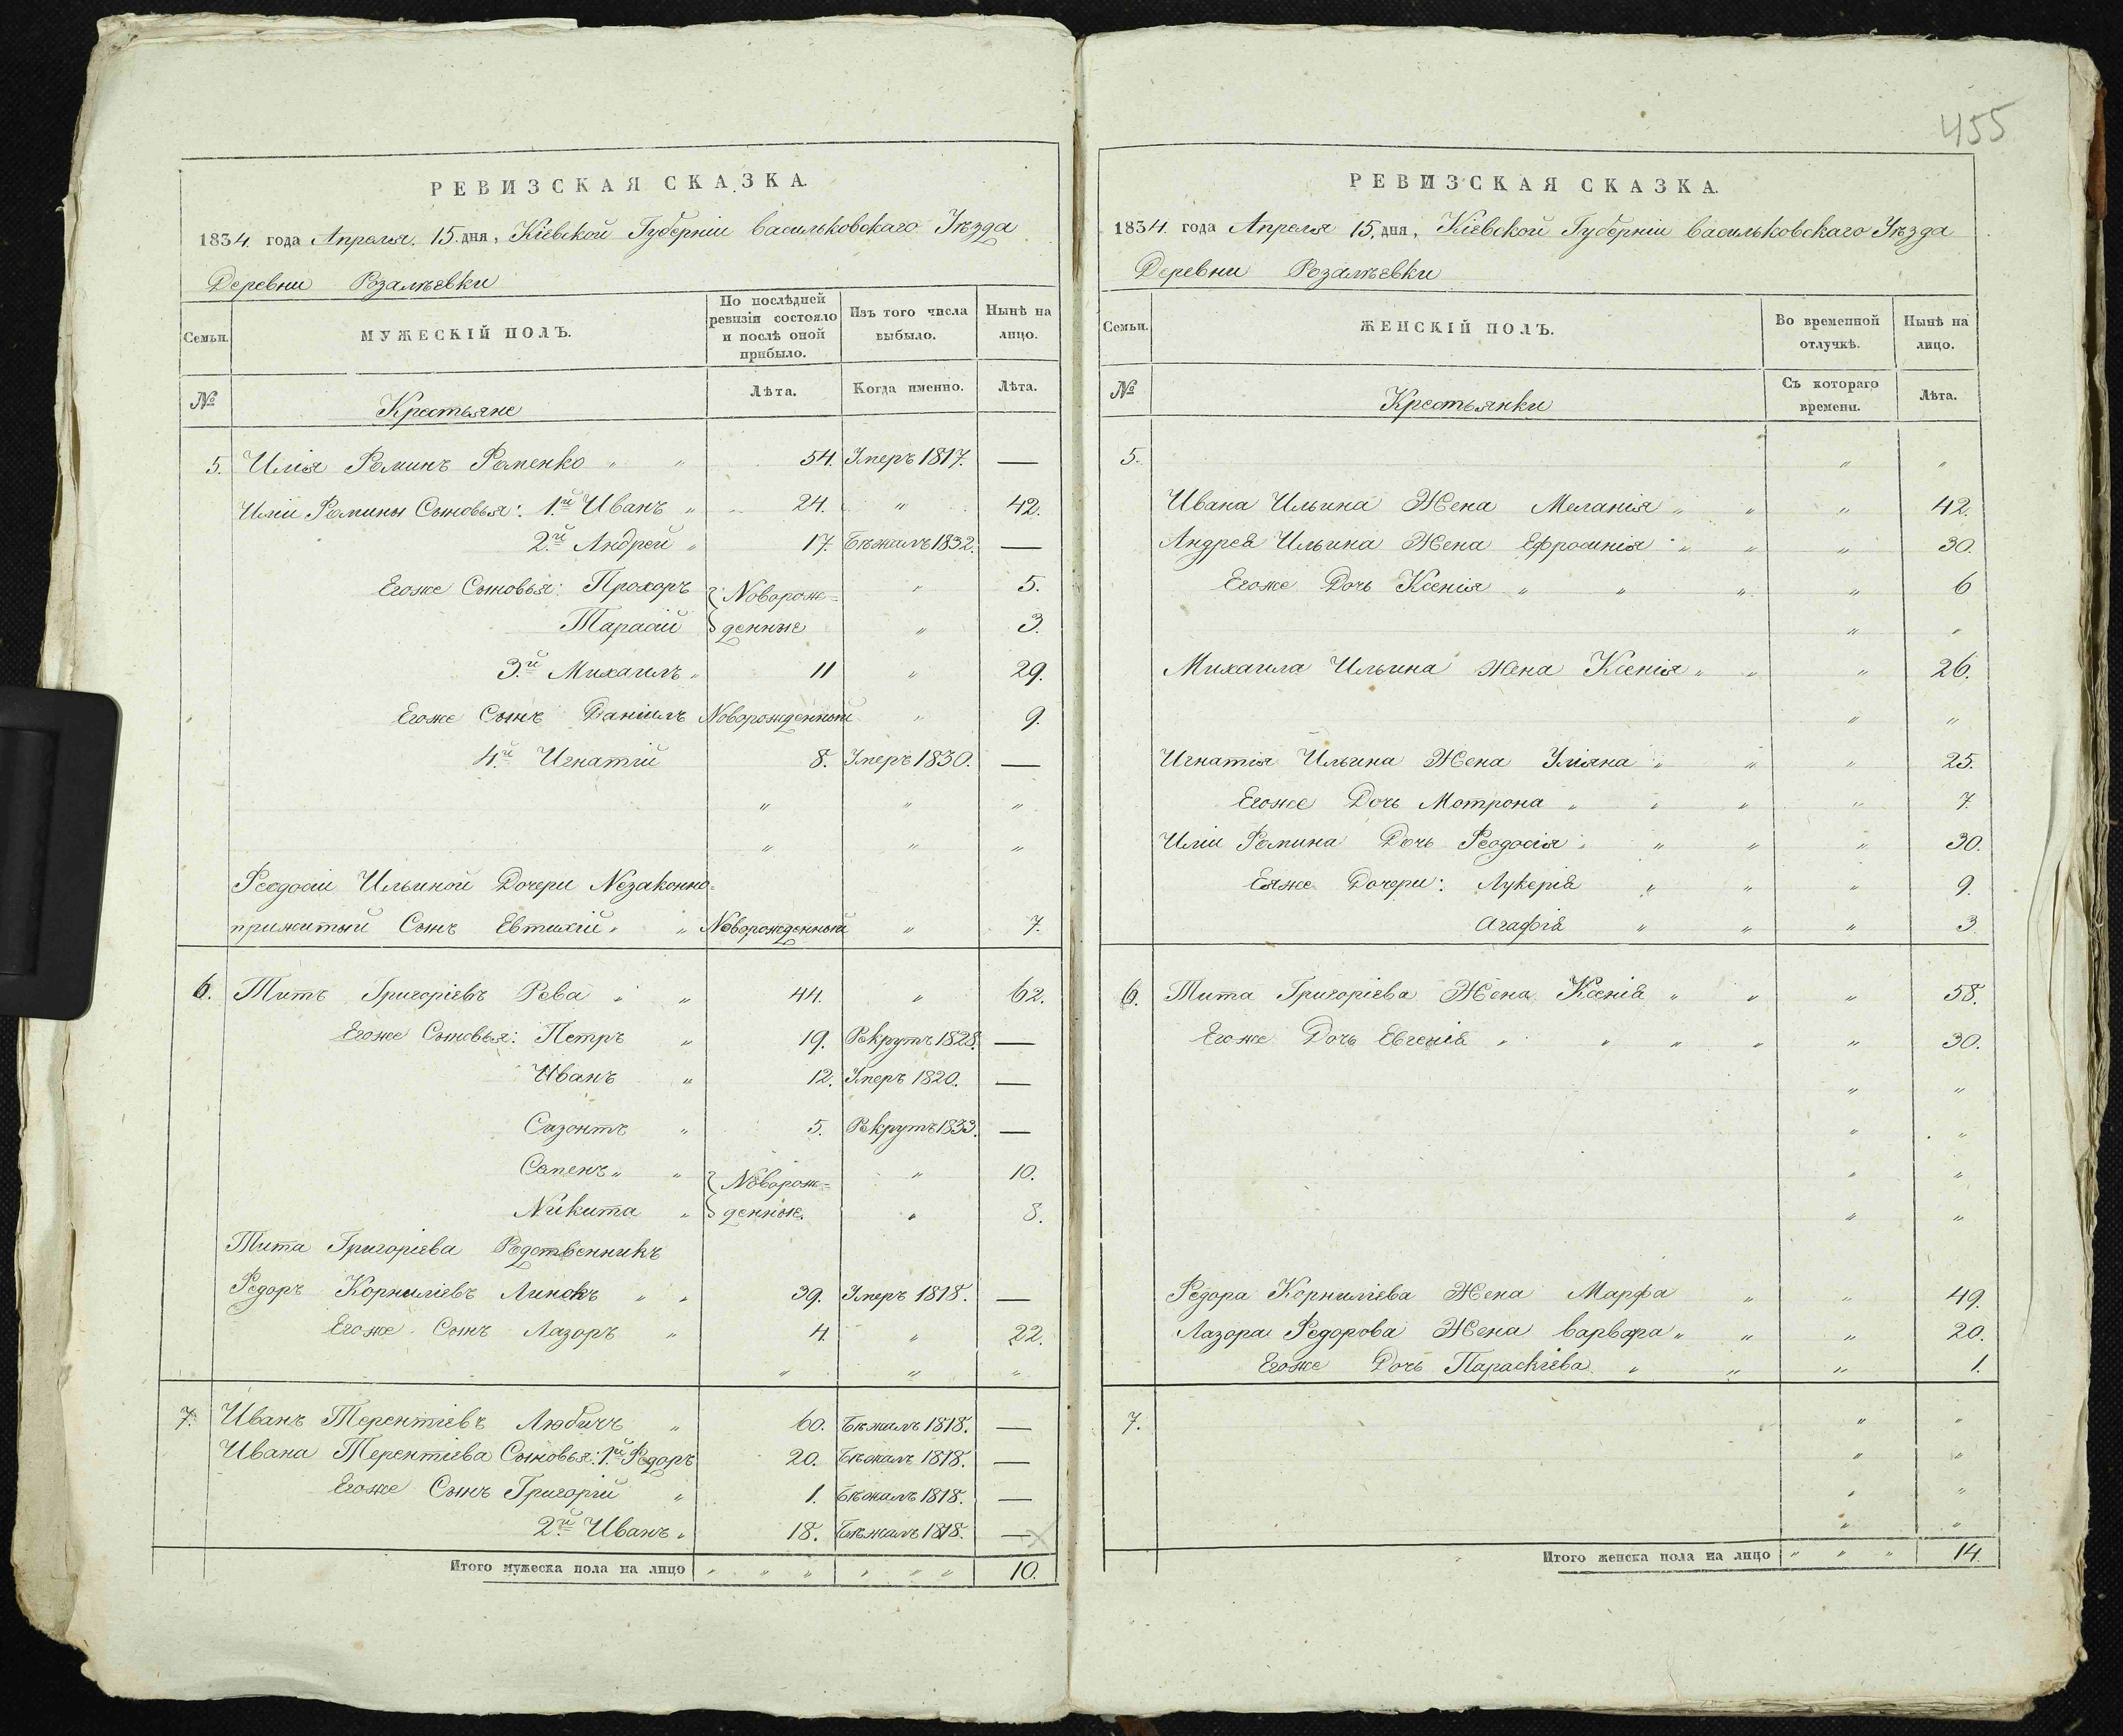 455
РЕВИЗСКАЯ СКАЗКА.
1834 года Апреля 15 дня, Кіевской Губерніи Васильковскаго Уѣзда
Деревни Розалѣевки
Семьи.
МУЖЕСКІЙ ПОЛЪ.
По послѣдней ревизіи состояло и послѣ оной прибыло.
Изъ того числа выбыло.
Нынѣ на лицо.
№
Крестьяне
Лѣта.
Когда именно.
Лѣта.
5. Илія Фоминъ Фоменко " " 54. Умеръ 1817. —
Иліи Фомины Сыновья: 1й Иванъ " 24. " 42.
2й Андрей " 17. Бѣжалъ 1832. —
Егоже Сыновья: Прохоръ Новорож= " 5.
Тарасій денные " 3.
3й Михаилъ " 11 " 29.
Егоже Сынъ Даніилъ Новорожденный " 9.
4й Игнатій 8. Умеръ 1830. —
" " "
" " "
Феодосіи Ильиной Дочери Незаконно=
прижитый Сынъ Евтихій " " Новорожденный " 7.
6. Титъ Григоріевъ Рева " " 44. " 62.
Егоже Сыновья: Петръ " 19. Рекрутъ 1828. —
Иванъ " 12. Умеръ 1820. —
Сазонтъ " 5. Рекрутъ 1833. —
Семенъ " " Новорож= " 10.
Никита " денные. " 8.
Тита Григоріева Родственникъ
Федоръ Корниліевъ Линокъ " " 39. Умеръ 1818. —
Егоже Сынъ Лазоръ " 4. " 22.
" " "
7. Иванъ Терентіевъ Любичъ " 60. Бѣжалъ 1818. —
Ивана Терентіева Сыновья: 1й Федоръ 20. Бѣжалъ 1818. —
Егоже Сынъ Григорій " 1. Бѣжалъ 1818. —
2й Иванъ " 18. Бѣжалъ 1818. —
Итого мужеска пола на лицо " " " " " " 10.
РЕВИЗСКАЯ СКАЗКА.
1834 года Апреля 15 дня, Кіевской Губерніи Васильковскаго Уѣзда
Деревни Розалѣевки
Семьи.
ЖЕНСКІЙ ПОЛЪ.
Во временной отлучкѣ.
Нынѣ на лицо.
№
Крестьянки
Съ котораго времени.
Лѣта.
5. " "
Ивана Ильина Жена Меланія " " " 42.
Андрея Ильина Жена Ефросинія " " " 30.
Егоже Дочь Ксенія " " " " 6
" "
Михаила Ильина Жена Ксенія " " " 26.
" "
Игнатія Ильина Жена Уліяна " " " 25.
Егоже Дочь Мотрона " " " " 7.
Иліи Фомина Дочь Феодосія " " " " 30.
Еяже Дочери: Лукерія " " " 9.
Агафія " " " 3.
6. Тита Григоріева Жена Ксенія " " " 58.
Егоже Дочь Евгенія " " " " " 30.
" "
" "
" "
" "
Федора Корниліева Жена Марфа " " 49.
Лазора Федорова Жена Варвара " " " 20.
Егоже Дочь Параскіева " " " 1.
7. " "
" "
" "
" "
Итого женска пола на лицо " " " 14.